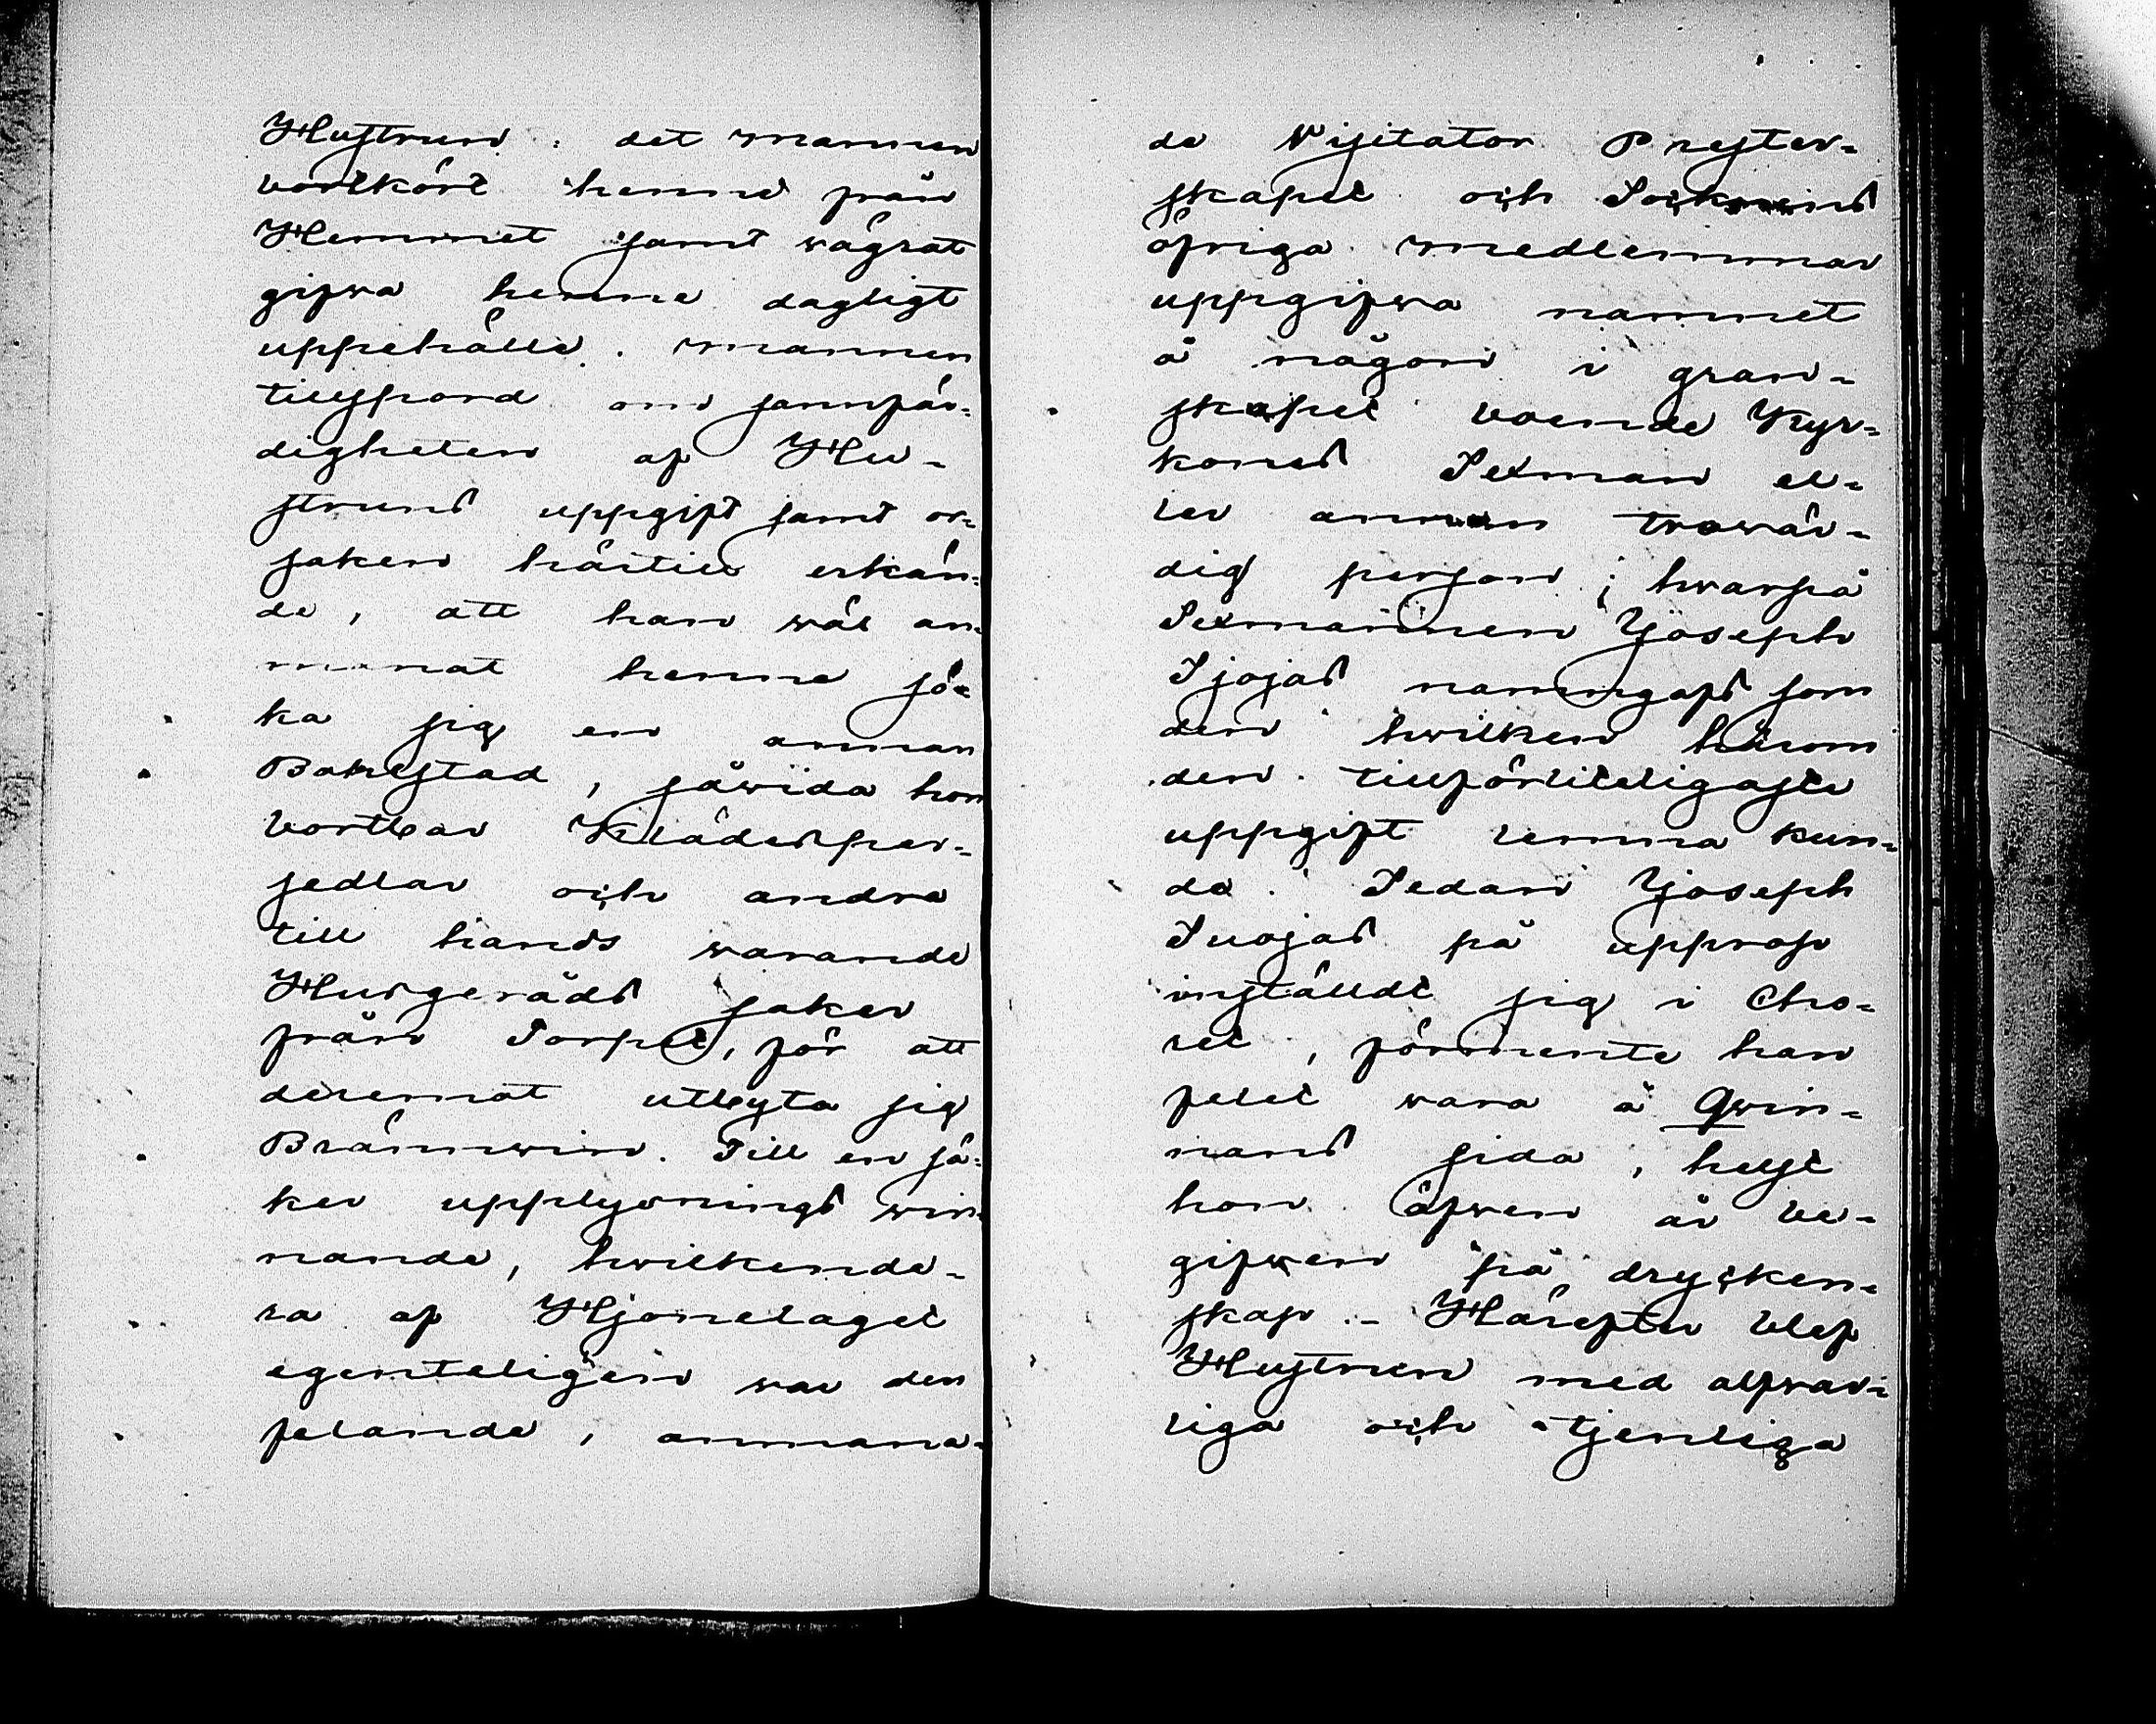 Hustrun: det mannen
bortkört henne från
Hemmet samt vägrat
gifva henne dagligt
uppehälle. mannen
tillspord om sannfär-
digheten af Hu-
struns uppgift samt or-
saken härtill erkän-
de, att han väl an-
manat henne sö-
ka sig en annan
Bohlstad, såvida hon
bortbar Klädesper-
sedlar och andra
till hands varande
Husgeråds saker
från Torpet, för att
deremot utbyta sig
Brännvin. Till en sä-
ker upplysnings vin-
nande, hvilkende-
ra af Hjonelaget
egenteligen var den
felande, anmana-
de Visitator Prester-
skapet och Socknens
öfriga medlemmar
uppgifva namnet
å någon i gran-
skapet boende Kyr-
kones Sexman el-
ler annan trovär-
dig person; hvarpå
Sexmannen Joseph
Sjojas namngafs som
den hvilken härom
den tillförliteligaste
uppgift lemna kun-
de. Sedan Joseph
Suojas på upprop
inställdt sig i Cho-
ret, förmente han
felet vara å Qvin-
nans sida, helst
hon äfven är be-
gifven på drycken-
skap.- Härefter blef
Hustrun med alfvar-
liga och tjenliga